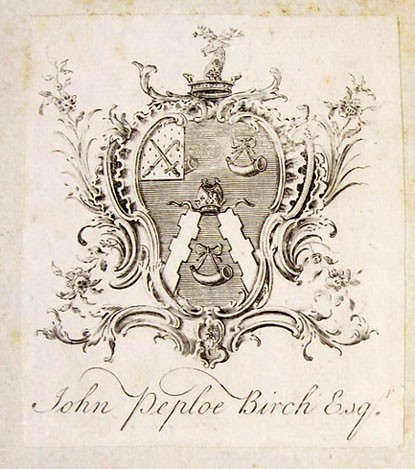 John Peploe Birch Esqr.